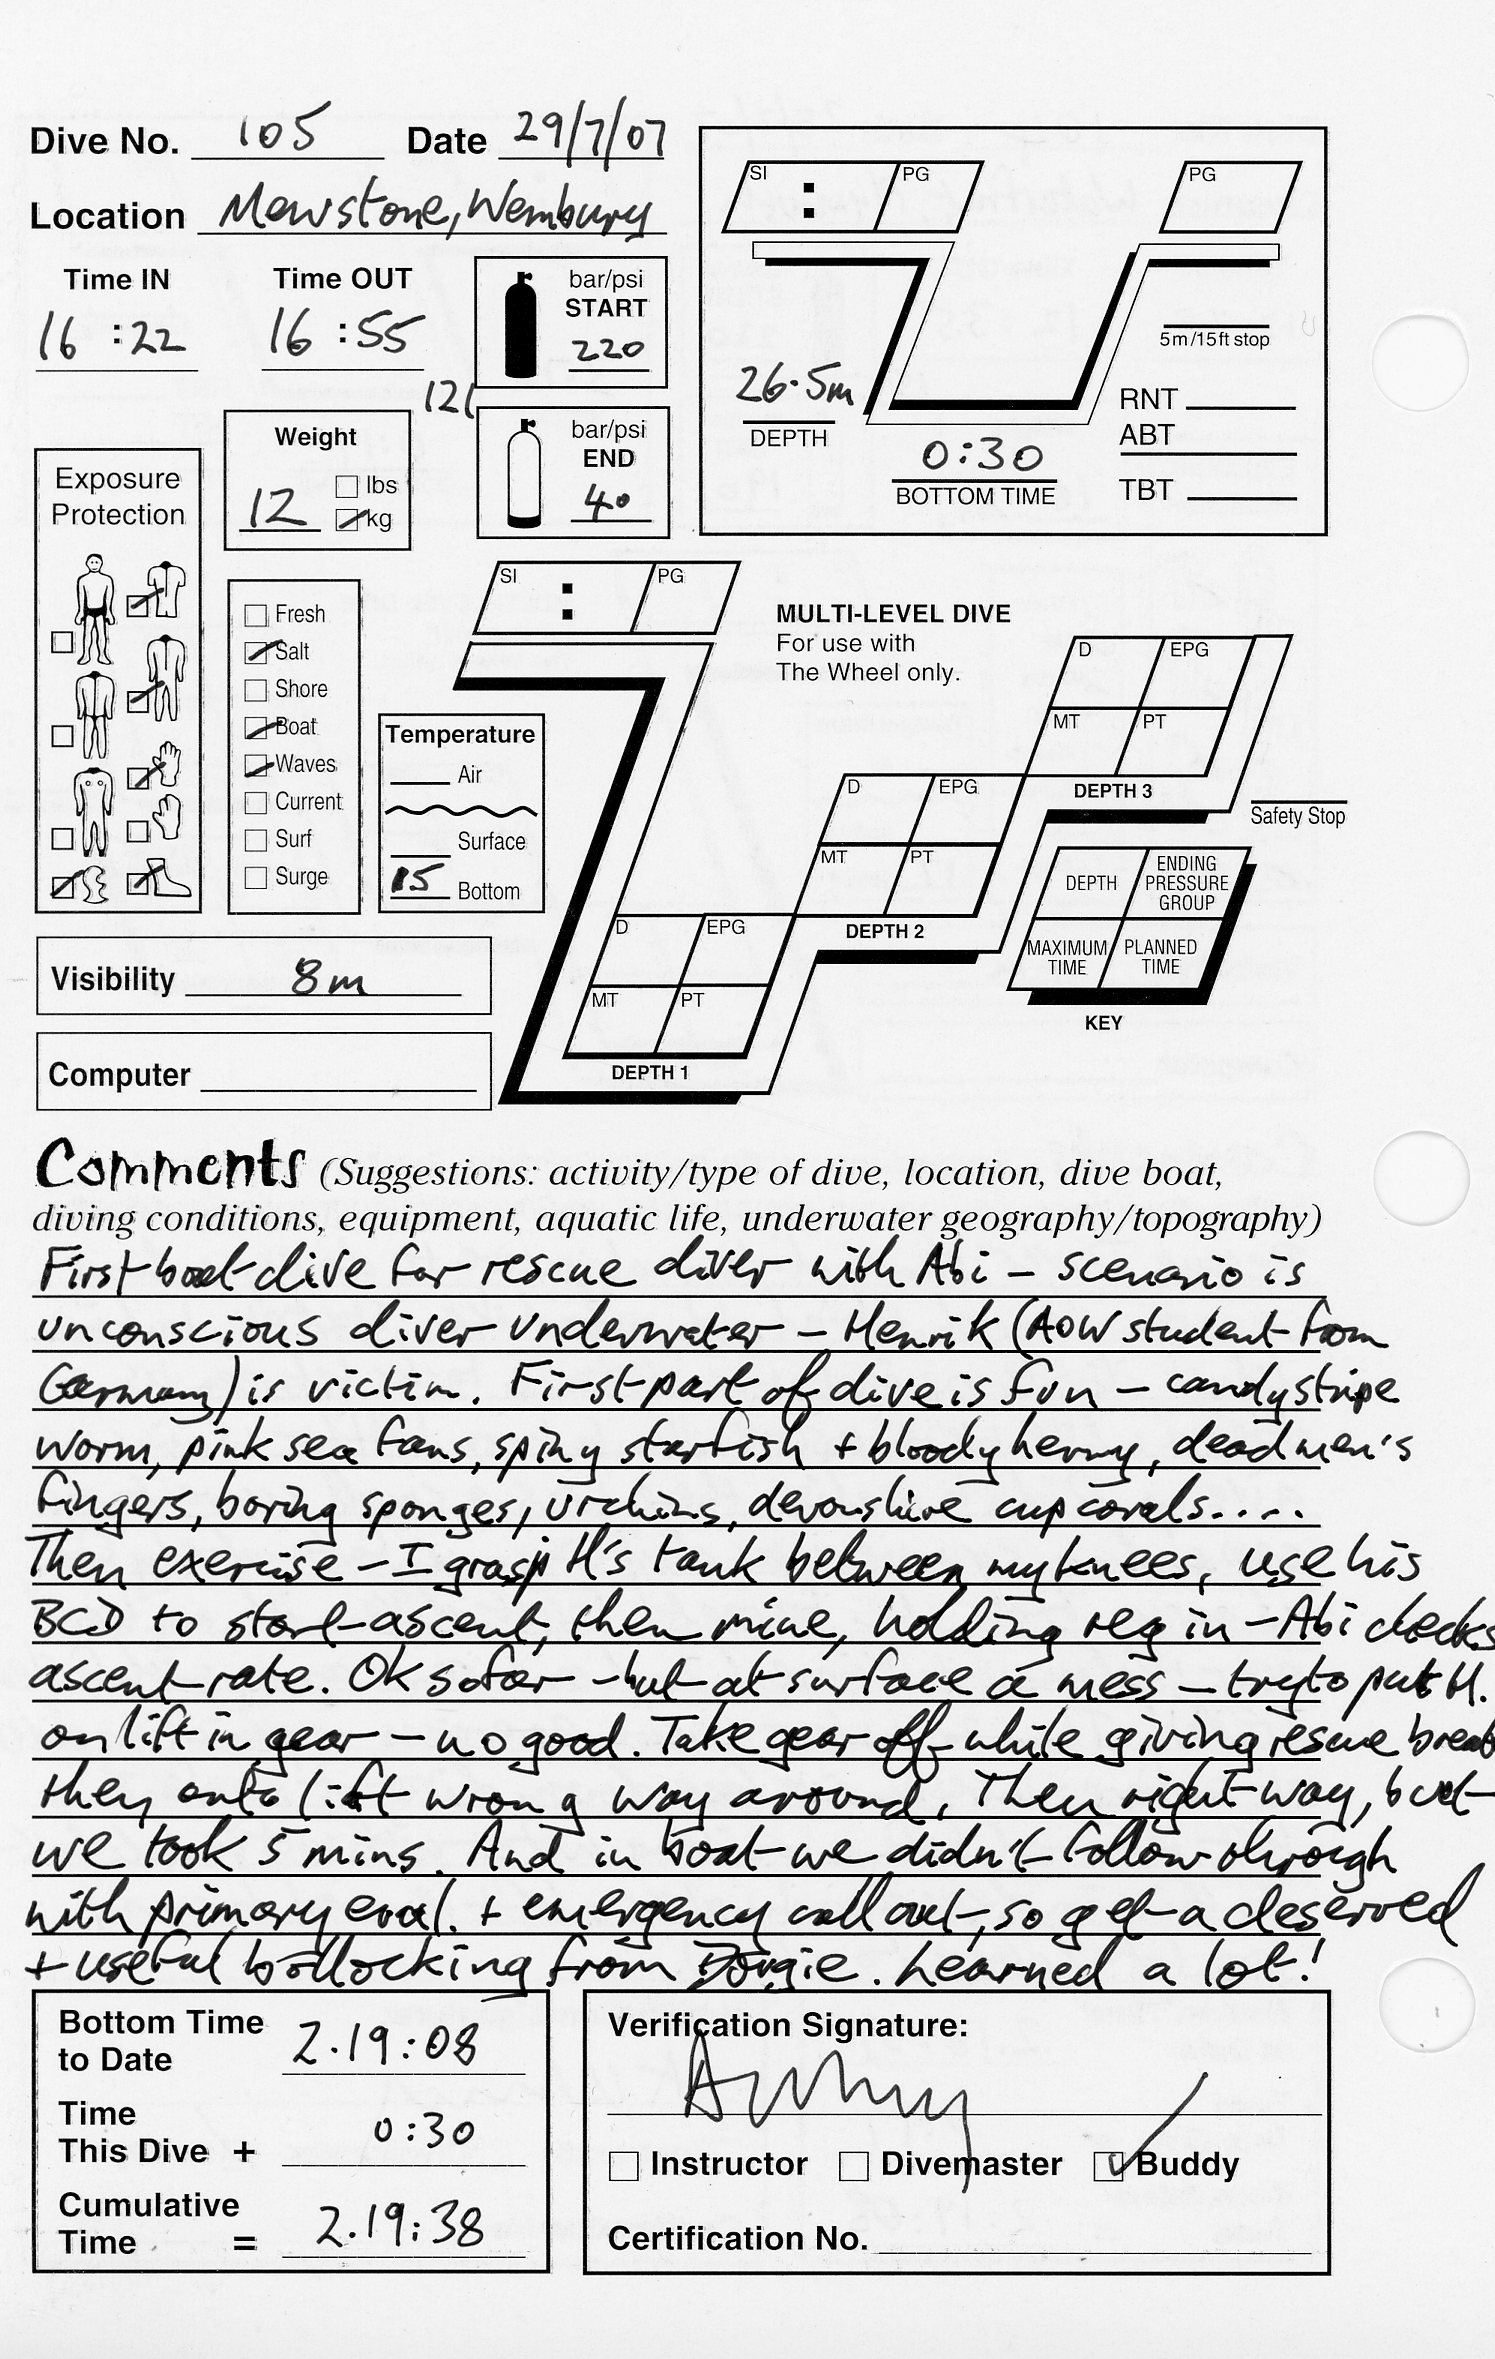 Dive No. 105 Date 29/7/07
Location Mewstone, Wembury
Time IN Time OUT
16 :22 16 :55
bar/psi
START
220
12l
bar/psi
END
40
Weight
12
lbs
kg
Exposure
Protection
Fresh
Salt
Shore
Boat
Waves
Current
Surf
Surge
Temperature
Air
Surface
15 Bottom
Visibility 8m
Computer
SI : PG
PG
5m/15ft stop
26.5m
DEPTH
0:30
BOTTOM TIME
RNT
ABT
TBT
SI : PG
MULTI-LEVEL DIVE
For use with
The Wheel only.
D EPG
MT PT
DEPTH 3
D EPG
MT PT
DEPTH 2
D EPG
MT PT
DEPTH 1
Safety Stop
DEPTH
ENDING
PRESSURE
GROUP
MAXIMUM
TIME
PLANNED
TIME
KEY
Comments (Suggestions: activity/type of dive, location, dive boat,
diving conditions, equipment, aquatic life, underwater geography/topography)
First boat dive for rescue diver with Abi – scenario is
unconscious diver underwater – Henrik (AOW student from
Germany) is victim. First part of dive is fun – candystripe
worm, pink sea fans, spiny starfish + bloody henry, dead men's
fingers, boring sponges, urchins, devonshire cup corals....
Then exercise – I grasp H's tank between my knees, use his
BCD to start ascent, then mine, holding reg in – Abi checks
ascent rate. OK so far – but at surface a mess – try to put H.
on lift in gear – no good. Take gear off while giving rescue breat
they onto lift wrong way around. Then right way, but
we took 5 mins. And in boat we didn't follow through
with primary eval. + emergency call out, so get a deserved
+ useful bollocking from Dougie. Learned a lot!
Bottom Time
to Date 2.19:08
Time
This Dive + 0:30
Cumulative
Time = 2.19:38
Verification Signature:
Instructor Divemaster Buddy
Certification No.